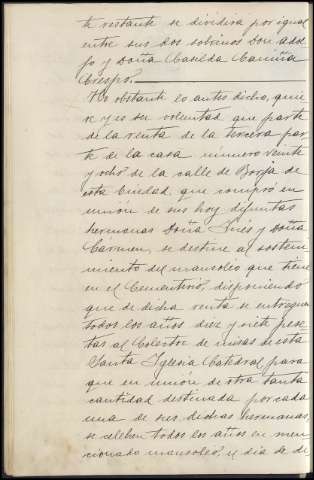 te restante se dividira por igual
entre sus dos sobrinos Don Adol-
fo y Doña Casilda Cariña
Crespo.
No obstante lo antes dicho, quie-
re y es su voluntad que parte
de la renta de la tercera par-
te de la casa número veinte
y ocho de la calle de Borja de
esta Ciudad, que compró en
unión de sus hoy difuntas
hermanas Doña Inés y Doña
Cármen, se destine al sosteni-
miento del mausoleo que tiene
en el Cementerio, disponiendo
que de dicha renta se entreguen
todos los años diez y siete pese-
tas al Colector de misas de esta
Santa Iglesia Catedral para
que en unión de otra tanta
cantidad destinada por cada
una de sus dichas hermanas,
se celebren todos los años en men-
cionado mausoleo, el dia de di-